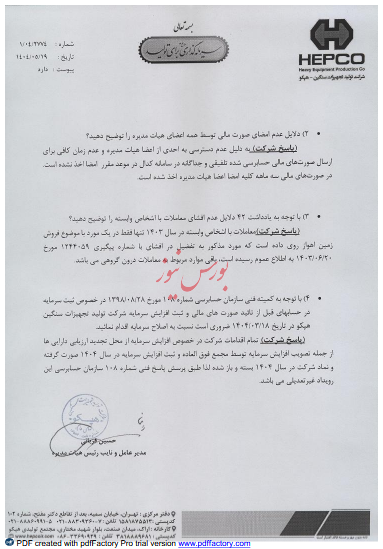 بسمه تعالی
سرمایه‌گذاری برای تولید
HEPCO
Heavy Equipment Production Co
شرکت تولید تجهیزات سنگین - هپکو
شماره : ۱/۰۴/۲۷۷۴
تاریخ : ۱۴۰۴/۰۵/۱۹
پیوست : دارد
۲) دلایل عدم امضای صورت مالی توسط همه اعضای هیات مدیره را توضیح دهید؟
(پاسخ شرکت) به دلیل عدم دسترسی به احدی از اعضا هیات مدیره و عدم زمان کافی برای
ارسال صورت‌های مالی حسابرسی شده تلفیقی و جداگانه در سامانه کدال در موعد مقرر امضا اخذ نشده است.
در صورت‌های مالی سه ماهه کلیه امضا اعضا هیات مدیره اخذ شده است.
۳) با توجه به یادداشت ۴۲ دلایل عدم افشای معاملات با اشخاص وابسته را توضیح دهید؟
(پاسخ شرکت) معاملات با اشخاص وابسته در سال ۱۴۰۳ تنها فقط در یک مورد با موضوع فروش
زمین اهواز روی داده است که مورد مذکور به تفضیل در افشای با شماره پیگیری ۱۲۴۴۰۵۹ مورخ
۱۴۰۳/۰۶/۲۰ به اطلاع عموم رسیده است. باقی موارد مربوط به معاملات درون گروهی می باشد.
بورس نیوز
۴) با توجه به کمیته فنی سازمان حسابرسی شماره ۱۰۸ مورخ ۱۳۹۸/۰۸/۲۸ در خصوص ثبت سرمایه
در حسابهای قبل از تائید صورت های مالی و ثبت افزایش سرمایه شرکت تولید تجهیزات سنگین
هپکو در تاریخ ۱۴۰۴/۰۳/۱۸ ضروری است نسبت به اصلاح سرمایه اقدام نمائید.
(پاسخ شرکت) تمام اقدامات شرکت در خصوص افزایش سرمایه از محل تجدید ارزیابی دارایی ها
از جمله تصویب افزایش سرمایه توسط مجمع فوق العاده و ثبت افزایش سرمایه در سال ۱۴۰۴ صورت گرفته
و نماد شرکت در سال ۱۴۰۴ بسته و باز شده لذا طبق پرسش پاسخ فنی شماره ۱۰۸ سازمان حسابرسی این
رویداد غیرتعدیلی می باشد.
حسین قربانی
مدیر عامل و نایب رئیس هیات مدیره
PDF created with pdfFactory Pro trial version www.pdffactory.com